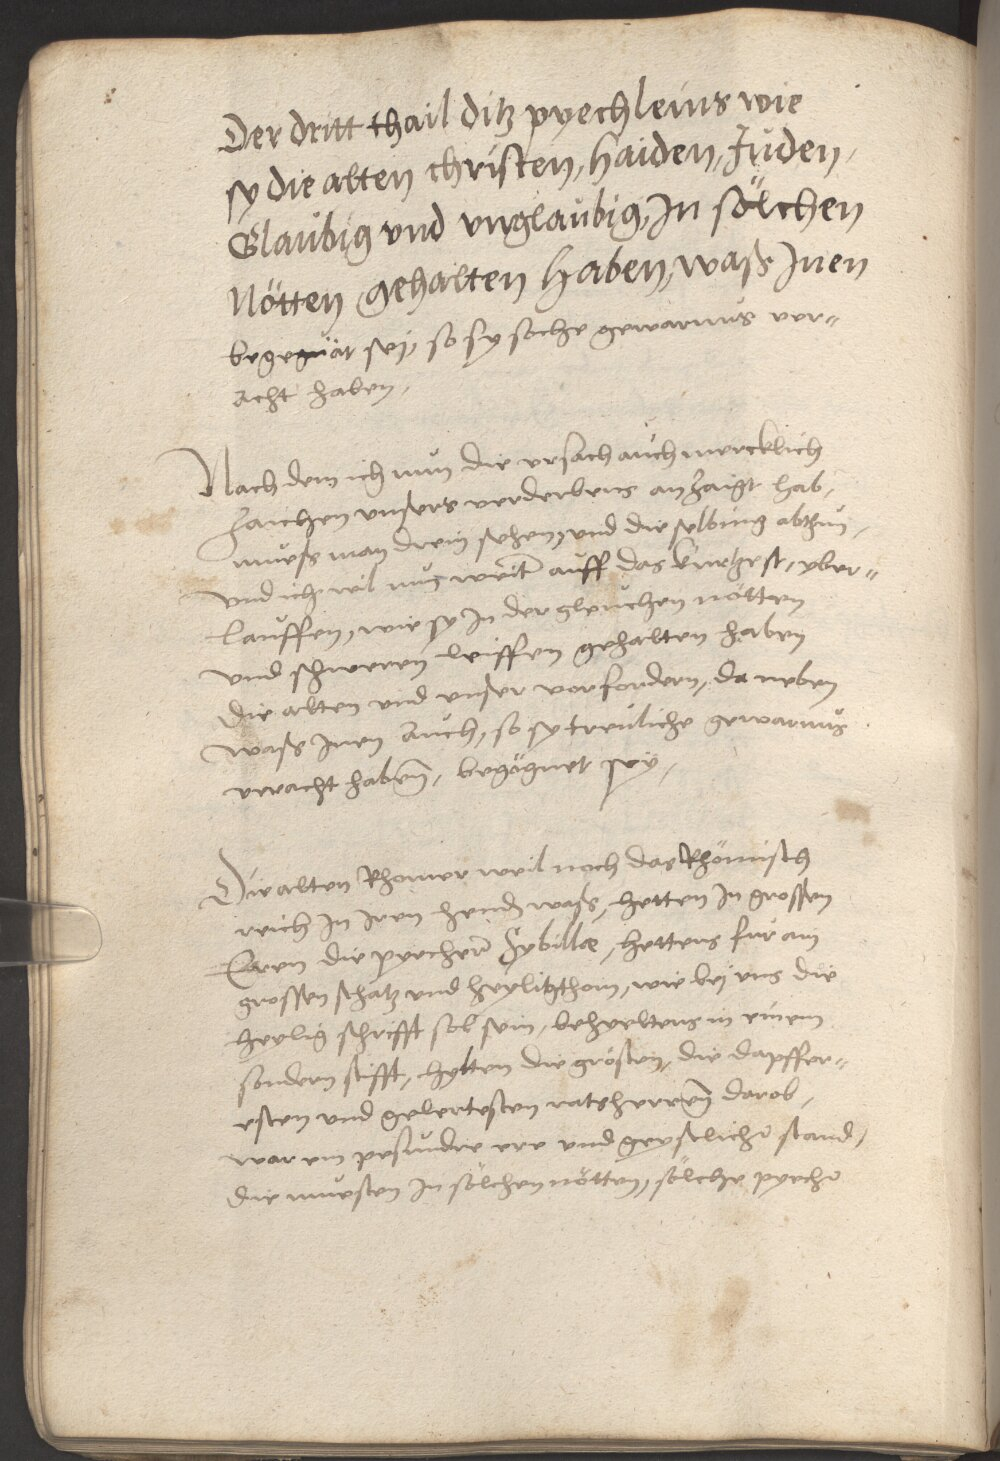 Der dritt thail ditz pyechleins wie
sy die alten christen, haiden, Juden,
Glaubig und unglaubig, In sölchen
Nötten gehalten haben, waß Inen
begegnät sej, so sy soche gewarnus ver=
acht haben,
Nach dem ich nun die ursach auch mercklich
zaichen unsers verderbens anzaigt hab,
mueß man drein sehen, und dieselbing abthun,
und ich wil nuz weiter auff das kurtzest, yber=
lauffen, wie sy In der gleuchen nötten
und schweren leiffen gehalten haben
die alten und unser vorfordern, da neben
waß Inen auch, so sy treuliche gewarnus
veracht haben, begögnet sey,
Die alten Rhomer weil noch das Rhömisch
reich In Iren henden waß, hetten In grossen
Eeren die pyecher Sybillæ, hettens fur ain
grossen schatz und heylithom, wie bej uns die
heylig schrifft sol sein, behueltens in einem
sondern stifft, hylten die grösten, die dapffer=
esten und gelertesten ratsherren darob,
war ein pesundre ere und geystlicher stand,
die muesten In sölchen nötten, sölche pyecher